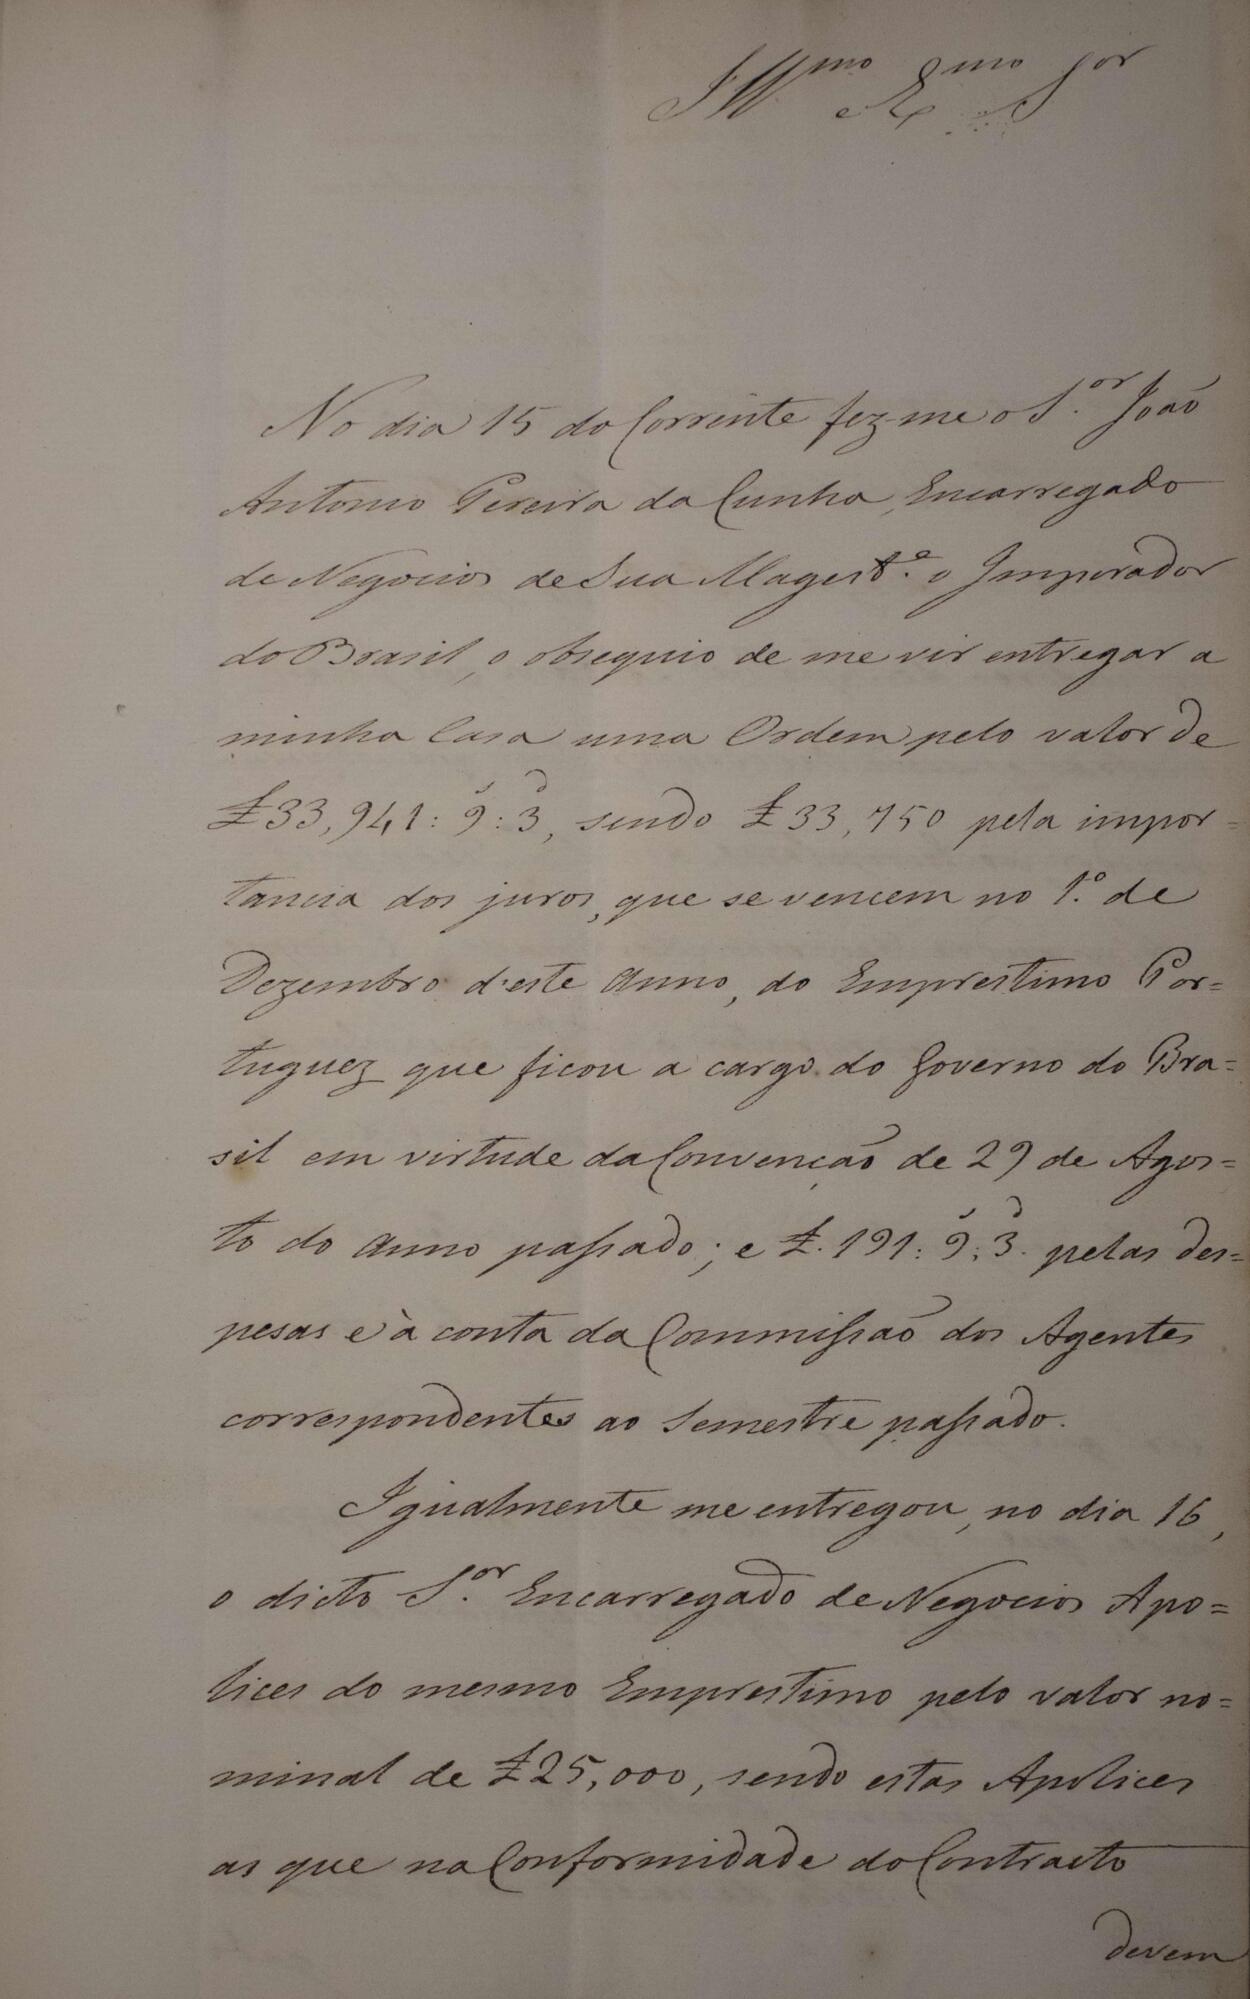 Ill<sup>mo</sup> Ex<sup>mo</sup> S<sup>or</sup>
No dia 15 do Corrente fez-me o S.<sup>or</sup> João
Antonio Pereira da Cunha, Encarregado
de Negocios de Sua Magest.<sup>e</sup> o Imperador
do Brasil, o obsequio de me vir entregar a
minha Casa uma Ordem pelo valor de
£33,941: 9<sup>s</sup>: 3<sup>d</sup>, sendo £33,750 pela impor=
tancia dos juros, que se vencem no 1.º de
Dezembro d'este anno, do Emprestimo Por=
tuguez que ficou a cargo do Governo do Bra=
sil em virtude da Convenção de 29 de Agos=
to do anno passado; e £.191: 9<sup>s</sup>: 3<sup>d</sup>. pelas des=
pesas e à conta da Commissão dos Agentes
correspondentes ao Semestre passado.
Igualmente me entregou, no dia 16,
o dicto S.<sup>or</sup> Encarregado de Negocios Apo=
lices do mesmo Emprestimo pelo valor no=
minal de £25,000, sendo estas Apolices
as que na Conformidade do Contracto
devem